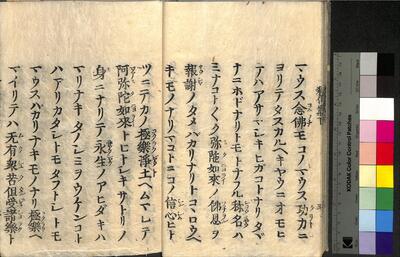 マウス念佛モコノマウス功力ニ
ヨリテタスカルヘキヤウニオモヒ
テハアサマシキヒガコトナリタマ
ナニホドナリトモトナフル稱名ハ
ミナコトコトク弥陀如來ノ佛恩ヲ
報謝ノタメハカリナリトコヽロウヘ
キモノナリマコトニコノ信心ヒト
ツニテカノ極樂淨土ヘムマレテ
阿弥陀如來トヒトシキサトリノ
身ニナリテ永生ノアヒダキハ
マリナキタノシミヲウケンコト
ハアリカタシトモタフトシトモ
マウスハカリナキモノナリ極樂ヘ
マイリテハ天有衆苦但受諸樂ト
KODAK Color Control Patches